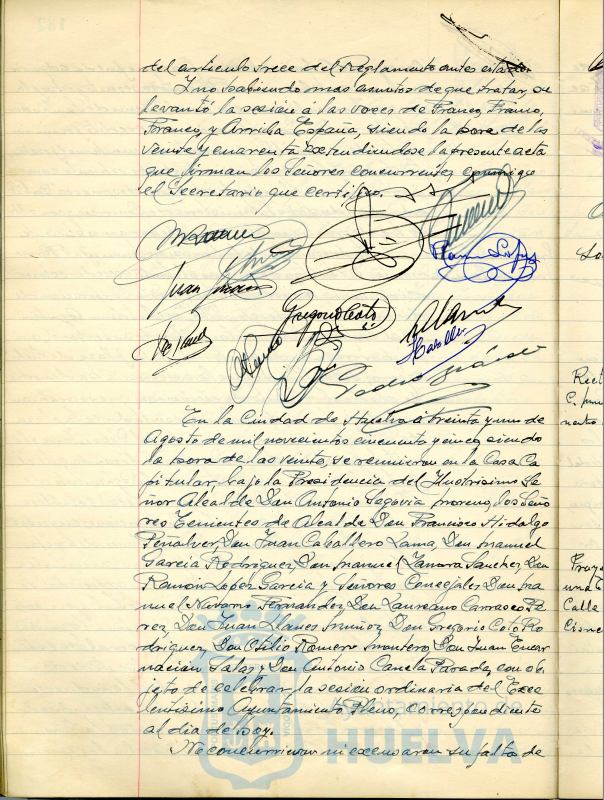 del artículo trece del Reglamento antes citado.
Y no habiendo más asuntos de que tratar, se
levantó la sesión a las voces de Franco, Franco,
Franco, y Arriba España, siendo la hora de las
veinte y cuarenta extendiéndose la presente acta
que firman los Señores concurrentes conmigo
el Secretario que certifico.
Ramón López
Gregorio Coto
En la Ciudad de Huelva a treinta y uno de
Agosto de mil novecientos cincuenta y cinco, siendo
la hora de las veinte, se reunieron en la Casa Ca
pitular, bajo la Presidencia del Ilustrísimo Se
ñor Alcalde Don Antonio Segovia Moreno, los Seño
res Tenientes de Alcalde Don Francisco Hidalgo
Peñalver, Don Juan Caballero Lama, Don Manuel
García Rodríguez, Don Manuel Zamora Sánchez, Don
Ramón López García y Señores Concejales Don Ma
nuel Navarro Fernández, Don Laureano Carrasco Pé
rez, Don Juan Llanes Muñoz, Don Gregorio Coto Ro
dríguez, Don Otilio Romero Montero, Don Juan Encar
nación Salas y Don Antonio Canela Parada, con ob
jeto de celebrar la sesión ordinaria del Exce
lentísimo Ayuntamiento Pleno, correspondiente
al día de hoy.
No concurrieron ni excusaron su falta de
Ayuntamiento de
HUELVA
Calle